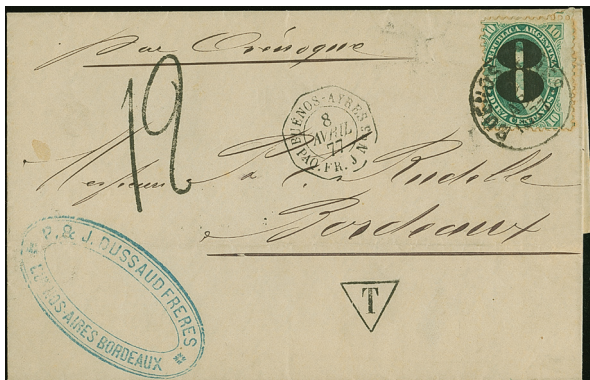 par Orénoque
REPUBLICA ARGENTINA
10 10
8
DIEZ CENTAVOS
BUENOS
12
BUENOS-AYRES
8
AVRIL
77
PAQ. FR. J Nº
Messieurs
Bordeaux
P. & J. DUSSAUD FRERES.
BUENOS AIRES BORDEAUX
T